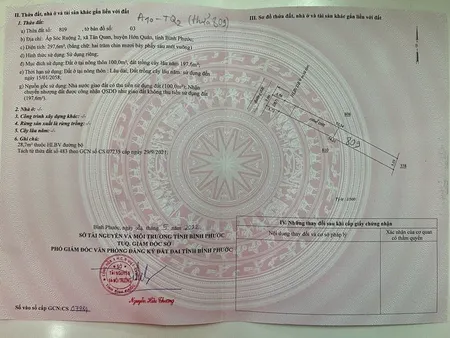 II. Thửa đất, nhà ở và tài sản khác gắn liền với đất
A70-TQ2 (thửa 809)
1. Thửa đất:
a) Thửa đất số: 809 , tờ bản đồ số: 03
b) Địa chỉ: Ấp Sóc Ruộng 2, xã Tân Quan, huyện Hớn Quản, tỉnh Bình Phước.
c) Diện tích: 297,6m², (bằng chữ: hai trăm chín mươi bảy phẩy sáu mét vuông)
d) Hình thức sử dụng: Sử dụng riêng;
đ) Mục đích sử dụng: Đất ở tại nông thôn 100,0m², đất trồng cây lâu năm 197,6m².
e) Thời hạn sử dụng: Đất ở tại nông thôn : Lâu dài, Đất trồng cây lâu năm: sử dụng đến
ngày 15/01/2058;
g) Nguồn gốc sử dụng: Nhà nước giao đất có thu tiền sử dụng đất (100,0m²); Nhận
chuyển nhượng đất được công nhận QSDĐ như giao đất không thu tiền sử dụng đất
(197,6m²).
2. Nhà ở: -/-
3. Công trình xây dựng khác: -/-
4. Rừng sản xuất là rừng trồng: -/-
5. Cây lâu năm: -/-
6. Ghi chú:
28,2m² thuộc HLBV đường bộ
Tách từ thửa đất số 483 theo GCN số CS 07238 cấp ngày 29/9/2021.
Bình Phước, ngày
SỞ TÀI NGUYÊN VÀ MÔI TRƯỜNG TỈNH BÌNH PHƯỚC
TUQ. GIÁM ĐỐC SỞ
PHÓ GIÁM ĐỐC VĂN PHÒNG ĐĂNG KÝ ĐẤT ĐAI TỈNH BÌNH PHƯỚC
SỞ
TÀI NGUYÊN
VÀ MÔI TRƯỜNG
Nguyễn Hữu Chương
Số vào sổ cấp GCN:CS
III. Sơ đồ thửa đất, nhà ở và tài sản khác gắn liền với đất
809
IV. Những thay đổi sau khi cấp giấy chứng nhận
Nội dung thay đổi và cơ sở pháp lý
Xác nhận của cơ quan
có thẩm quyền